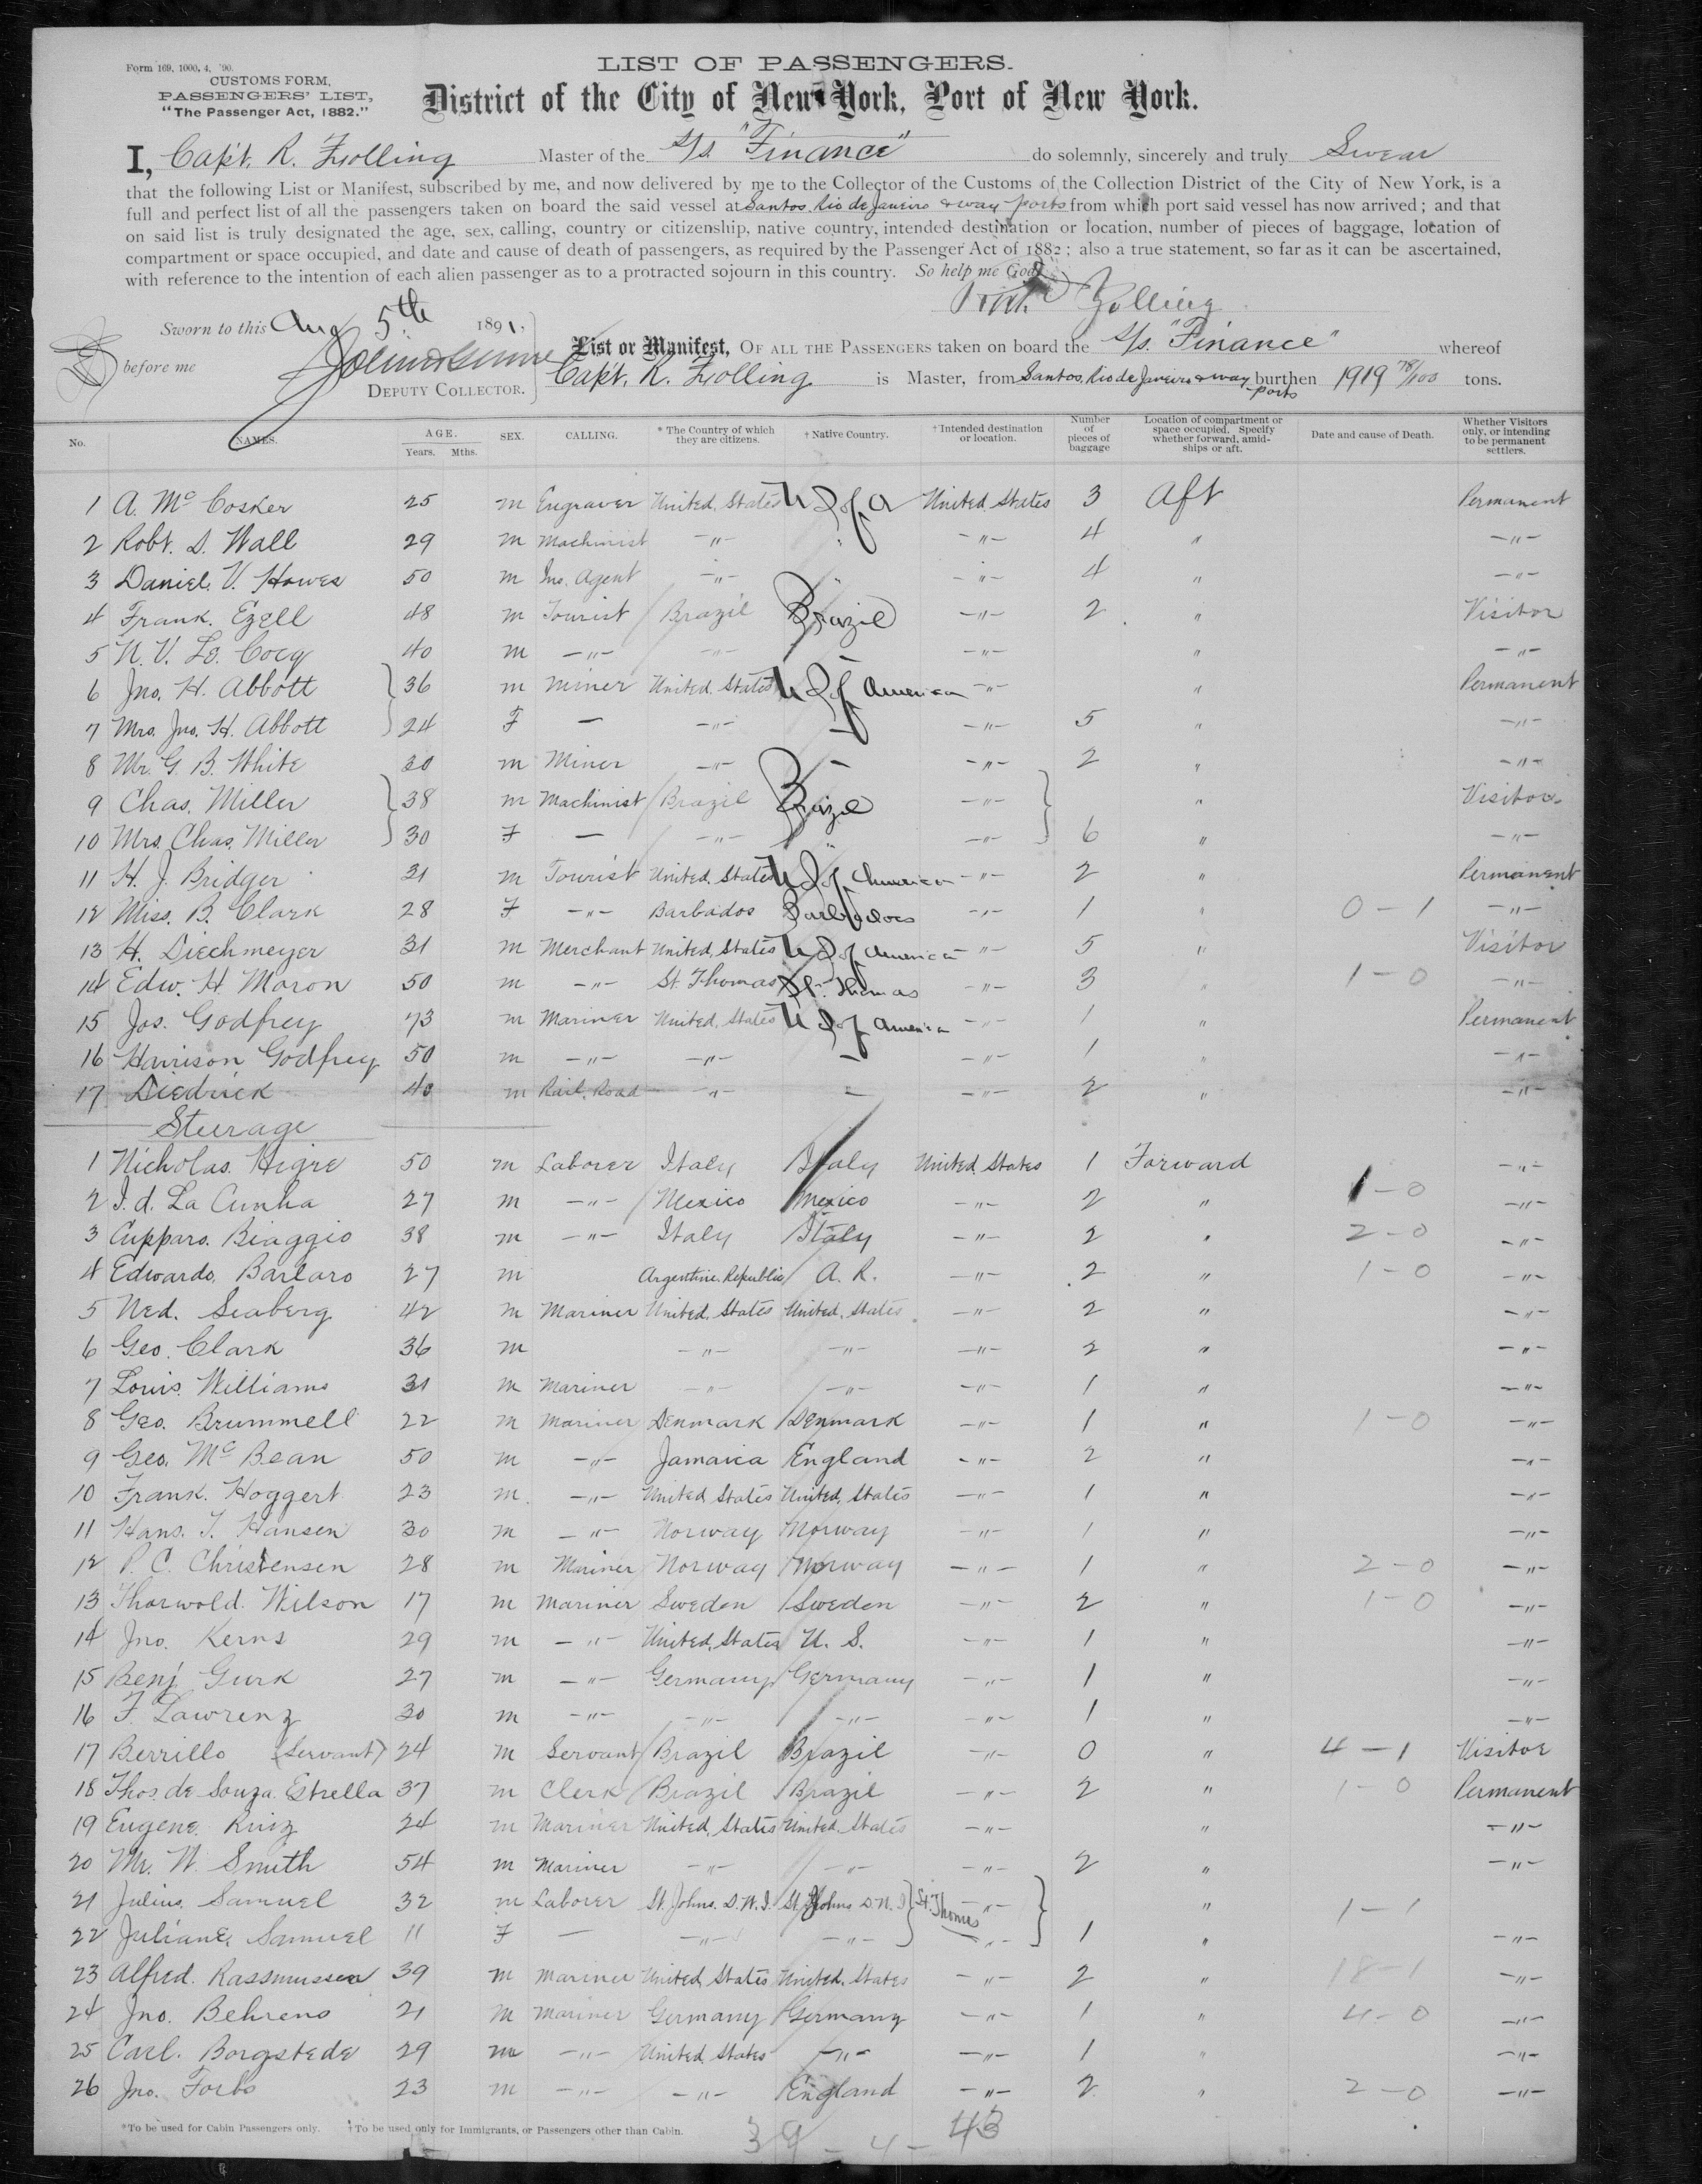 Form 169, 1000, 4, '90.
CUSTOMS FORM,
PASSENGERS' LIST,
"The Passenger Act, 1882."
LIST OF PASSENGERS.
District of the City of New York, Port of New York.
I, Capt. R. Zolling Master of the S/s. "Finance" do solemnly, sincerely and truly Swear
that the following List or Manifest, subscribed by me, and now delivered by me to the Collector of the Customs of the Collection District of the City of New York, is a
full and perfect list of all the passengers taken on board the said vessel at Santos, Rio de Janeiro & way ports from which port said vessel has now arrived; and that
on said list is truly designated the age, sex, calling, country or citizenship, native country, intended destination or location, number of pieces of baggage, location of
compartment or space occupied, and date and cause of death of passengers, as required by the Passenger Act of 1882; also a true statement, so far as it can be ascertained,
with reference to the intention of each alien passenger as to a protracted sojourn in this country. So help me God
Zolling
Sworn to this Aug 5th 1891,
before me
DEPUTY COLLECTOR.
List or Manifest, OF ALL THE PASSENGERS taken on board the S/s. "Finance" whereof
Capt. R. Zolling is Master, from Santos, Rio de Janeiro & way ports burthen 1919 78/100 tons.
No. NAMES. AGE. Years. Mths. SEX. CALLING. * The Country of which they are citizens. † Native Country. † Intended destination or location. Number of pieces of baggage Location of compartment or space occupied. Specify whether forward, amidships or aft. Date and cause of Death. Whether Visitors only, or intending to be permanent settlers.
1 A. Mc Cosker 25 m Engraver United States U S of A United States 3 Aft Permanent
2 Robt. D. Wall 29 m Machinist -"- -"- 4 " -"-
3 Daniel V. Howes 50 m Ins. Agent -"- " -"- 4 " -"-
4 Frank. Ezell 48 m Tourist Brazil Brazil -"- 2 " Visitor
5 N. V. Le Cocq 40 m -"- -"- -"- " -"-
6 Jno. H. Abbott 36 m Miner United States U S of America -"- " Permanent
7 Mrs. Jno. H. Abbott 24 F — -"- -"- 5 " -"-
8 Mr. G. B. White 30 m Miner -"- — -"- 2 " -"-
9 Chas. Miller 38 m Machinist Brazil Brazil -"- " Visitor
10 Mrs. Chas. Miller 30 F — -"- " -"- 6 " -"-
11 H. J. Bridger 31 m Tourist United States U S of America -"- 2 " Permanent
12 Miss. B. Clark 28 F -"- Barbados Barbadoes -"- 1 " 0 - 1 -"-
13 H. Diechmeyer 31 m Merchant United States U S of America -"- 5 " Visitor
14 Edw. H. Moron 50 m -"- St Thomas St. Thomas -"- 3 " 1 - 0 -"-
15 Jos. Godfrey 73 m Mariner United States U S of America -"- 1 " Permanent
16 Harrison Godfrey 50 m -"- -"- — -"- 1 " -"-
17 Diedrick 40 m Rail. Road -"- — -"- 2 " -"-
Steerage
1 Nicholas. Higre 50 m Laborer Italy Italy United States 1 Forward -"-
2 I. d. La Cunha 27 m -"- Mexico Mexico -"- 2 " 1 - 0 -"-
3 Cupparo. Biaggio 38 m -"- Italy Italy -"- 2 " 2 - 0 -"-
4 Edwardo. Barlaro 27 m Argentine. Republic A. R. -"- 2 " 1 - 0 -"-
5 Ned. Seaberg 42 m Mariner United States United States -"- 2 " -"-
6 Geo. Clark 36 m -"- -"- -"- 2 " -"-
7 Louis. Williams 31 m Mariner -"- -"- -"- 1 " -"-
8 Geo. Brummell 22 m Mariner Denmark Denmark -"- 1 " 1 - 0 -"-
9 Geo. Mc Bean 50 m -"- Jamaica England -"- 2 " -"-
10 Frank. Hoggert 23 m. -"- United States United States -"- 1 " -"-
11 Hans. T. Hansen 30 m -"- Norway Norway -"- 1 " -"-
12 P. C. Christensen 28 m Mariner Norway Norway -"- 1 " 2 - 0 -"-
13 Thorwold. Wilson 17 m Mariner Sweden Sweden -"- 2 " 1 - 0 -"-
14 Jno. Kerns 29 m -"- United States U. S. -"- 1 " -"-
15 Benj Gurk 27 m -"- Germany Germany -"- 1 " -"-
16 F. Lawrenz 30 m -"- -"- -"- -"- 1 " -"-
17 Berrillo (Servant) 24 m Servant Brazil Brazil -"- 0 " 4 - 1 Visitor
18 Thos. de Souza. Estrella 37 m Clerk Brazil Brazil -"- 2 " 1 - 0 Permanent
19 Eugene. Ruiz 24 m Mariner United States United States -"- " -"-
20 Mr. W. Smith 54 m Mariner -"- -"- -"- 2 " -"-
21 Julius. Samuel 32 m Laborer St. Johns. D.W.I. St. Johns D.W.I St. Thomas -"- " 1 - 1
22 Juliane. Samuel 11 F — -"- -"- -"- 1 " -"-
23 Alfred. Rassmussen 39 m Mariner United States United States -"- 2 " 18 - 1 -"-
24 Jno. Behrens 21 m Mariner Germany Germany -"- 1 " 4 - 0 -"-
25 Carl. Borgstede 29 m -"- United States -"- -"- 1 " -"-
26 Jno. Forbs 23 m -"- -"- England -"- 2 " 2 - 0 -"-
*To be used for Cabin Passengers only. †To be used only for Immigrants, or Passengers other than Cabin.
39 - 4 - 43